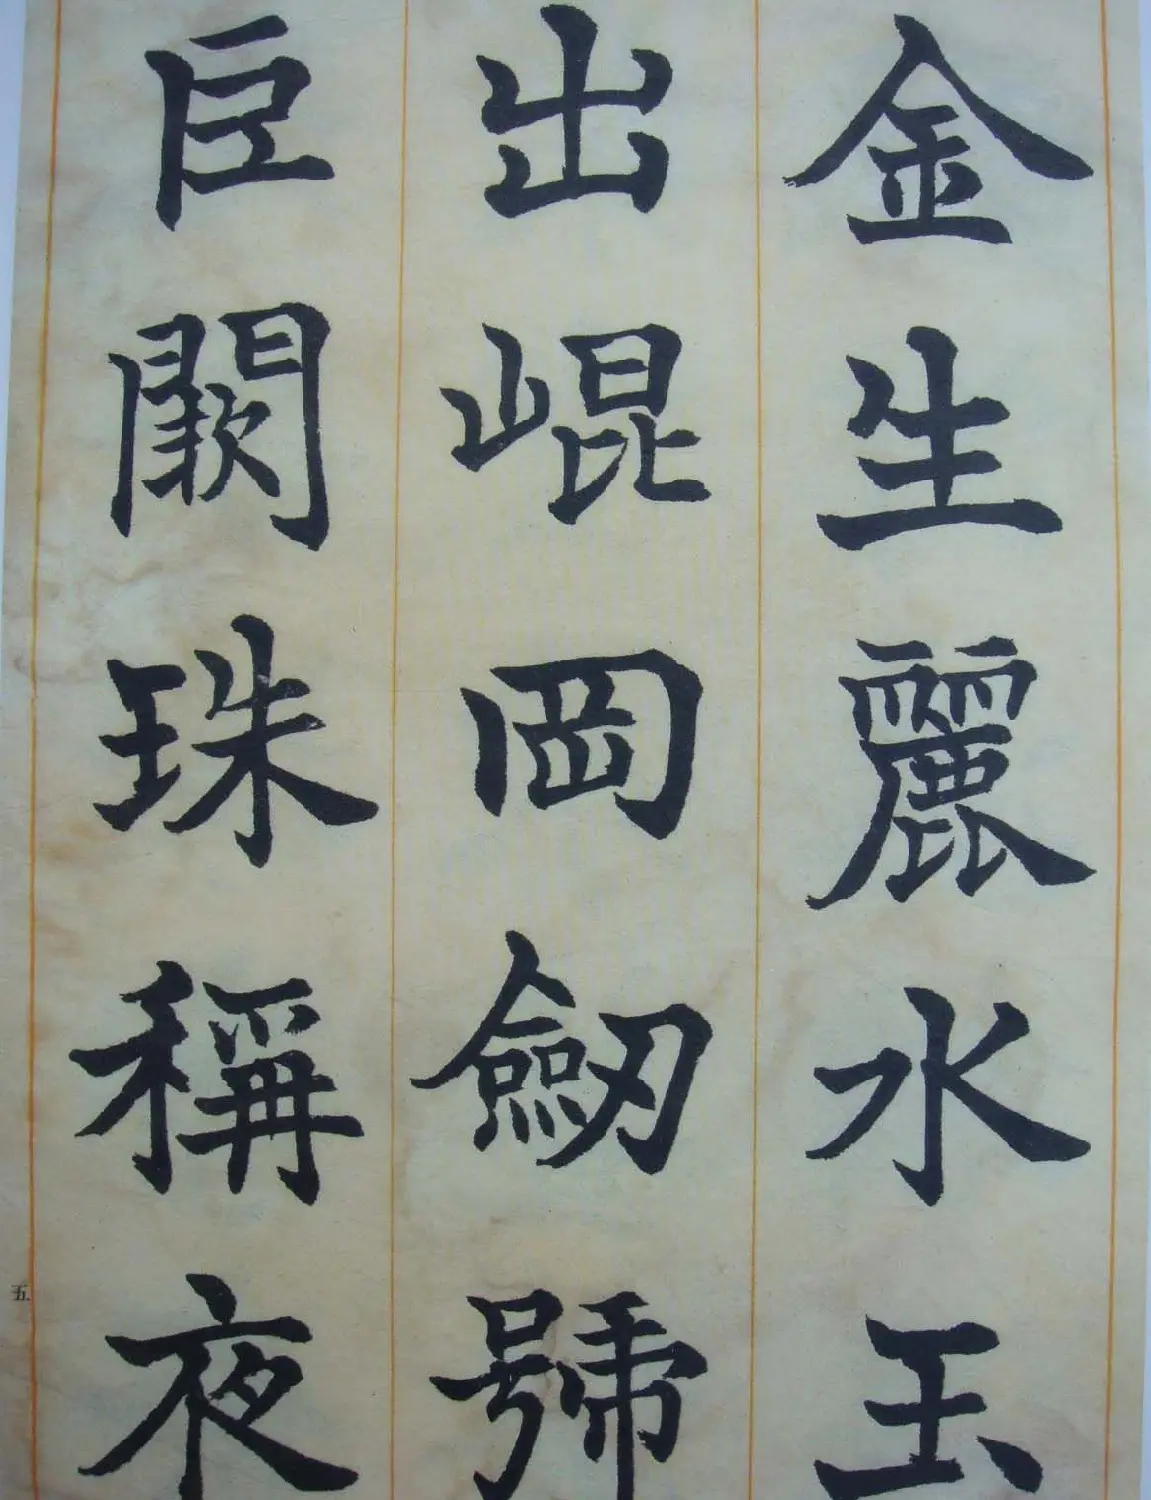 金生麗水玉
出崐岡劒號
巨闕珠稱夜
五